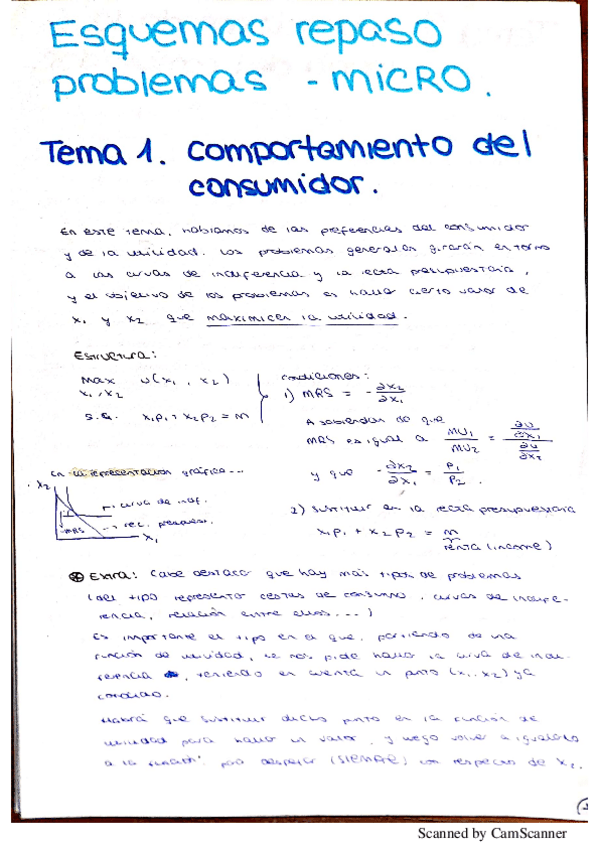 Esquemas repaso
problemas - MICRO.
Tema 1. Comportamiento del
consumidor.
En este tema, hablamos de las preferencias del consumidor
y de la utilidad. Los problemas generales girarán en torno
a las curvas de indiferencia y la recta presupuestaria,
y el objetivo de los problemas es hallar cierto valor de
x₁ y x₂ que maximicen la utilidad.
Estructura:
Max u(x₁, x₂)
x₁, x₂
s.a. x₁p₁ + x₂p₂ = m
condiciones:
1) MRS = - ∂x₂/∂x₁
A sabiendas de que
MRS es igual a MU₁/MU₂ = (∂u/∂x₁)/(∂u/∂x₂)
y que - ∂x₂/∂x₁ = P₁/P₂.
2) Sustituir en la recta presupuestaria
x₁p₁ + x₂p₂ = m
renta (income)
En la representación gráfica...
x₂
→ curva de indif.
MRS
→ rec. presupues.
x₁
⊛ Extra: Cabe destacar que hay más tipos de problemas
(del tipo representar cestas de consumo, curvas de indife-
rencia, relación entre ellos...)
Es importante el tipo en el que, partiendo de una
función de utilidad, se nos pide hallar la curva de indi-
ferencia, teniendo en cuenta un punto (x₁, x₂) ya
conocido.
Habrá que sustituir dicho punto en la función de
utilidad para hallar un valor, y luego volver a igualarlo
a la función para despejar (SIEMPRE) con respecto de x₂.
Scanned by CamScanner